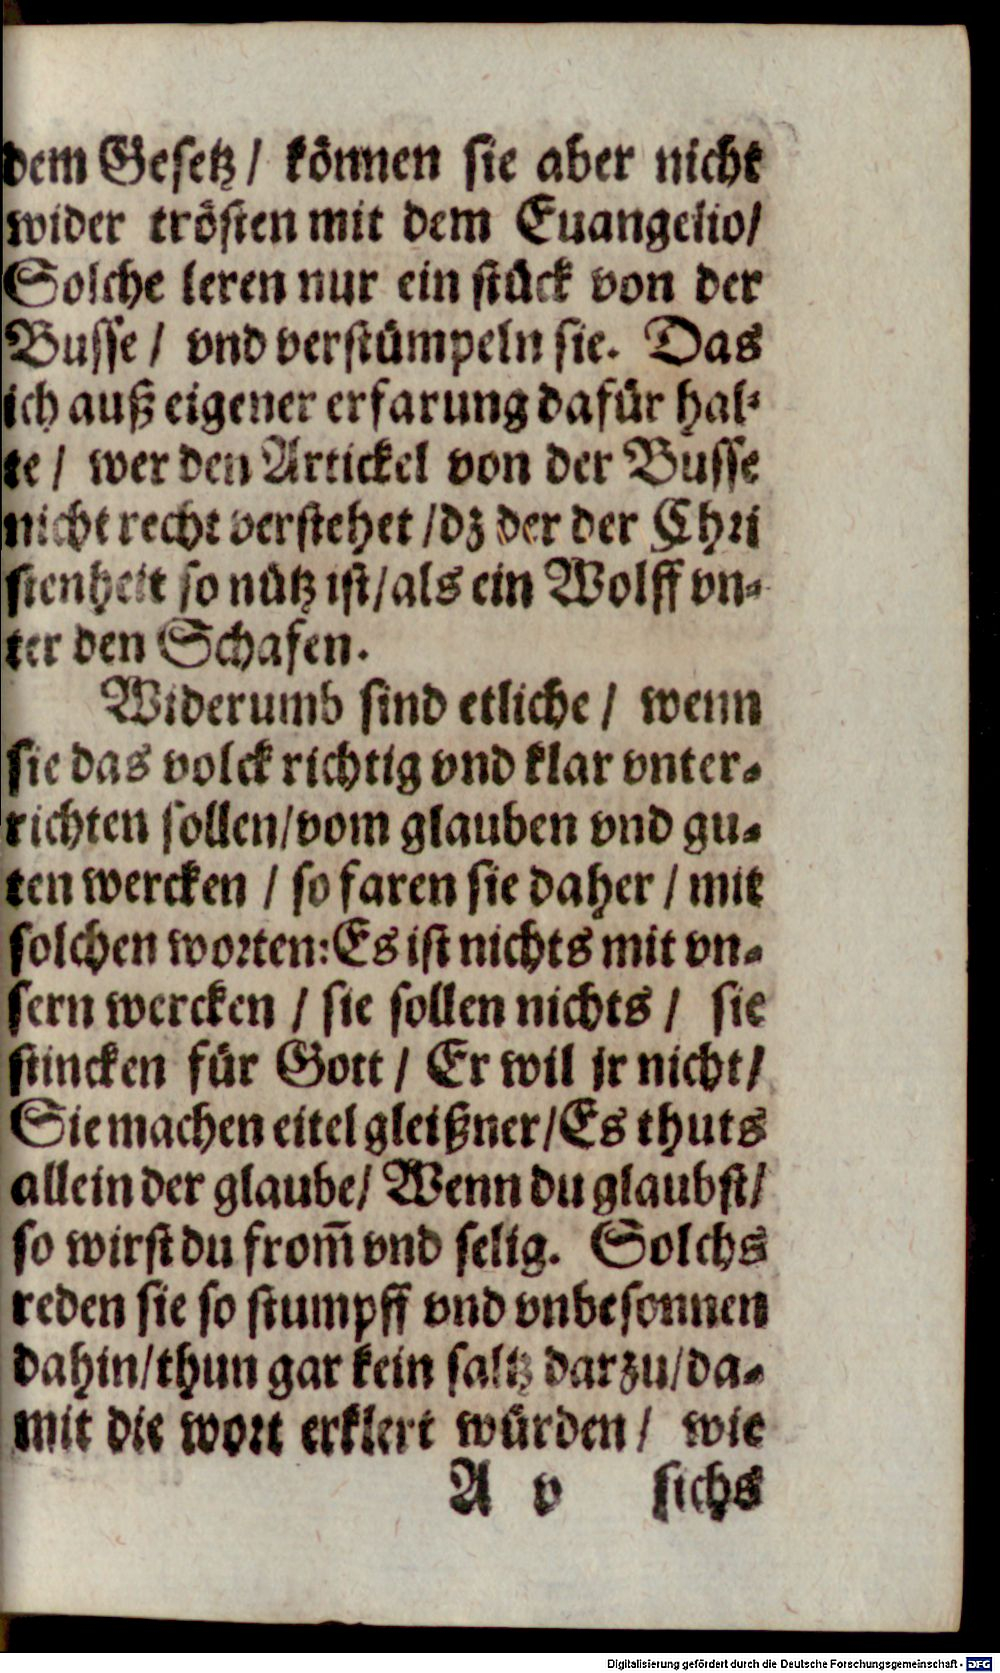 dem Gesetz / können sie aber nicht
wider trösten mit dem Euangelio/
Solche leren nur ein stück von der
Busse / vnd verstümpeln sie. Das
ich auß eigener erfarung dafür hal-
te / wer den Artickel von der Busse
nicht recht verstehet /dz der der Chri
stenheit so nütz ist/als ein Wolff vn-
ter den Schafen.
Widerumb sind etliche / wenn
sie das volck richtig vnd klar vnter-
richten sollen/vom glauben vnd gu-
ten wercken / so faren sie daher / mit
solchen worten:Es ist nichts mit vn-
sern wercken / sie sollen nichts / sie
stincken für Gott / Er wil jr nicht/
Sie machen eitel gleißner/Es thuts
allein der glaube/ Wenn du glaubst/
so wirst du from̃ vnd selig. Solchs
reden sie so stumpff vnd vnbesonnen
dahin/thun gar kein saltz darzu/da-
mit die wort erklert würden / wie
A v sichs
Digitalisierung gefördert durch die Deutsche Forschungsgemeinschaft - DFG